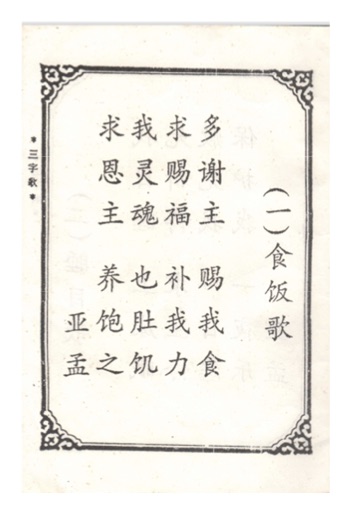 （一）食饭歌
多谢主 赐我食
求赐福 补我力
我灵魂 也肚饥
求恩主 养饱之
亚孟
*三字歌*